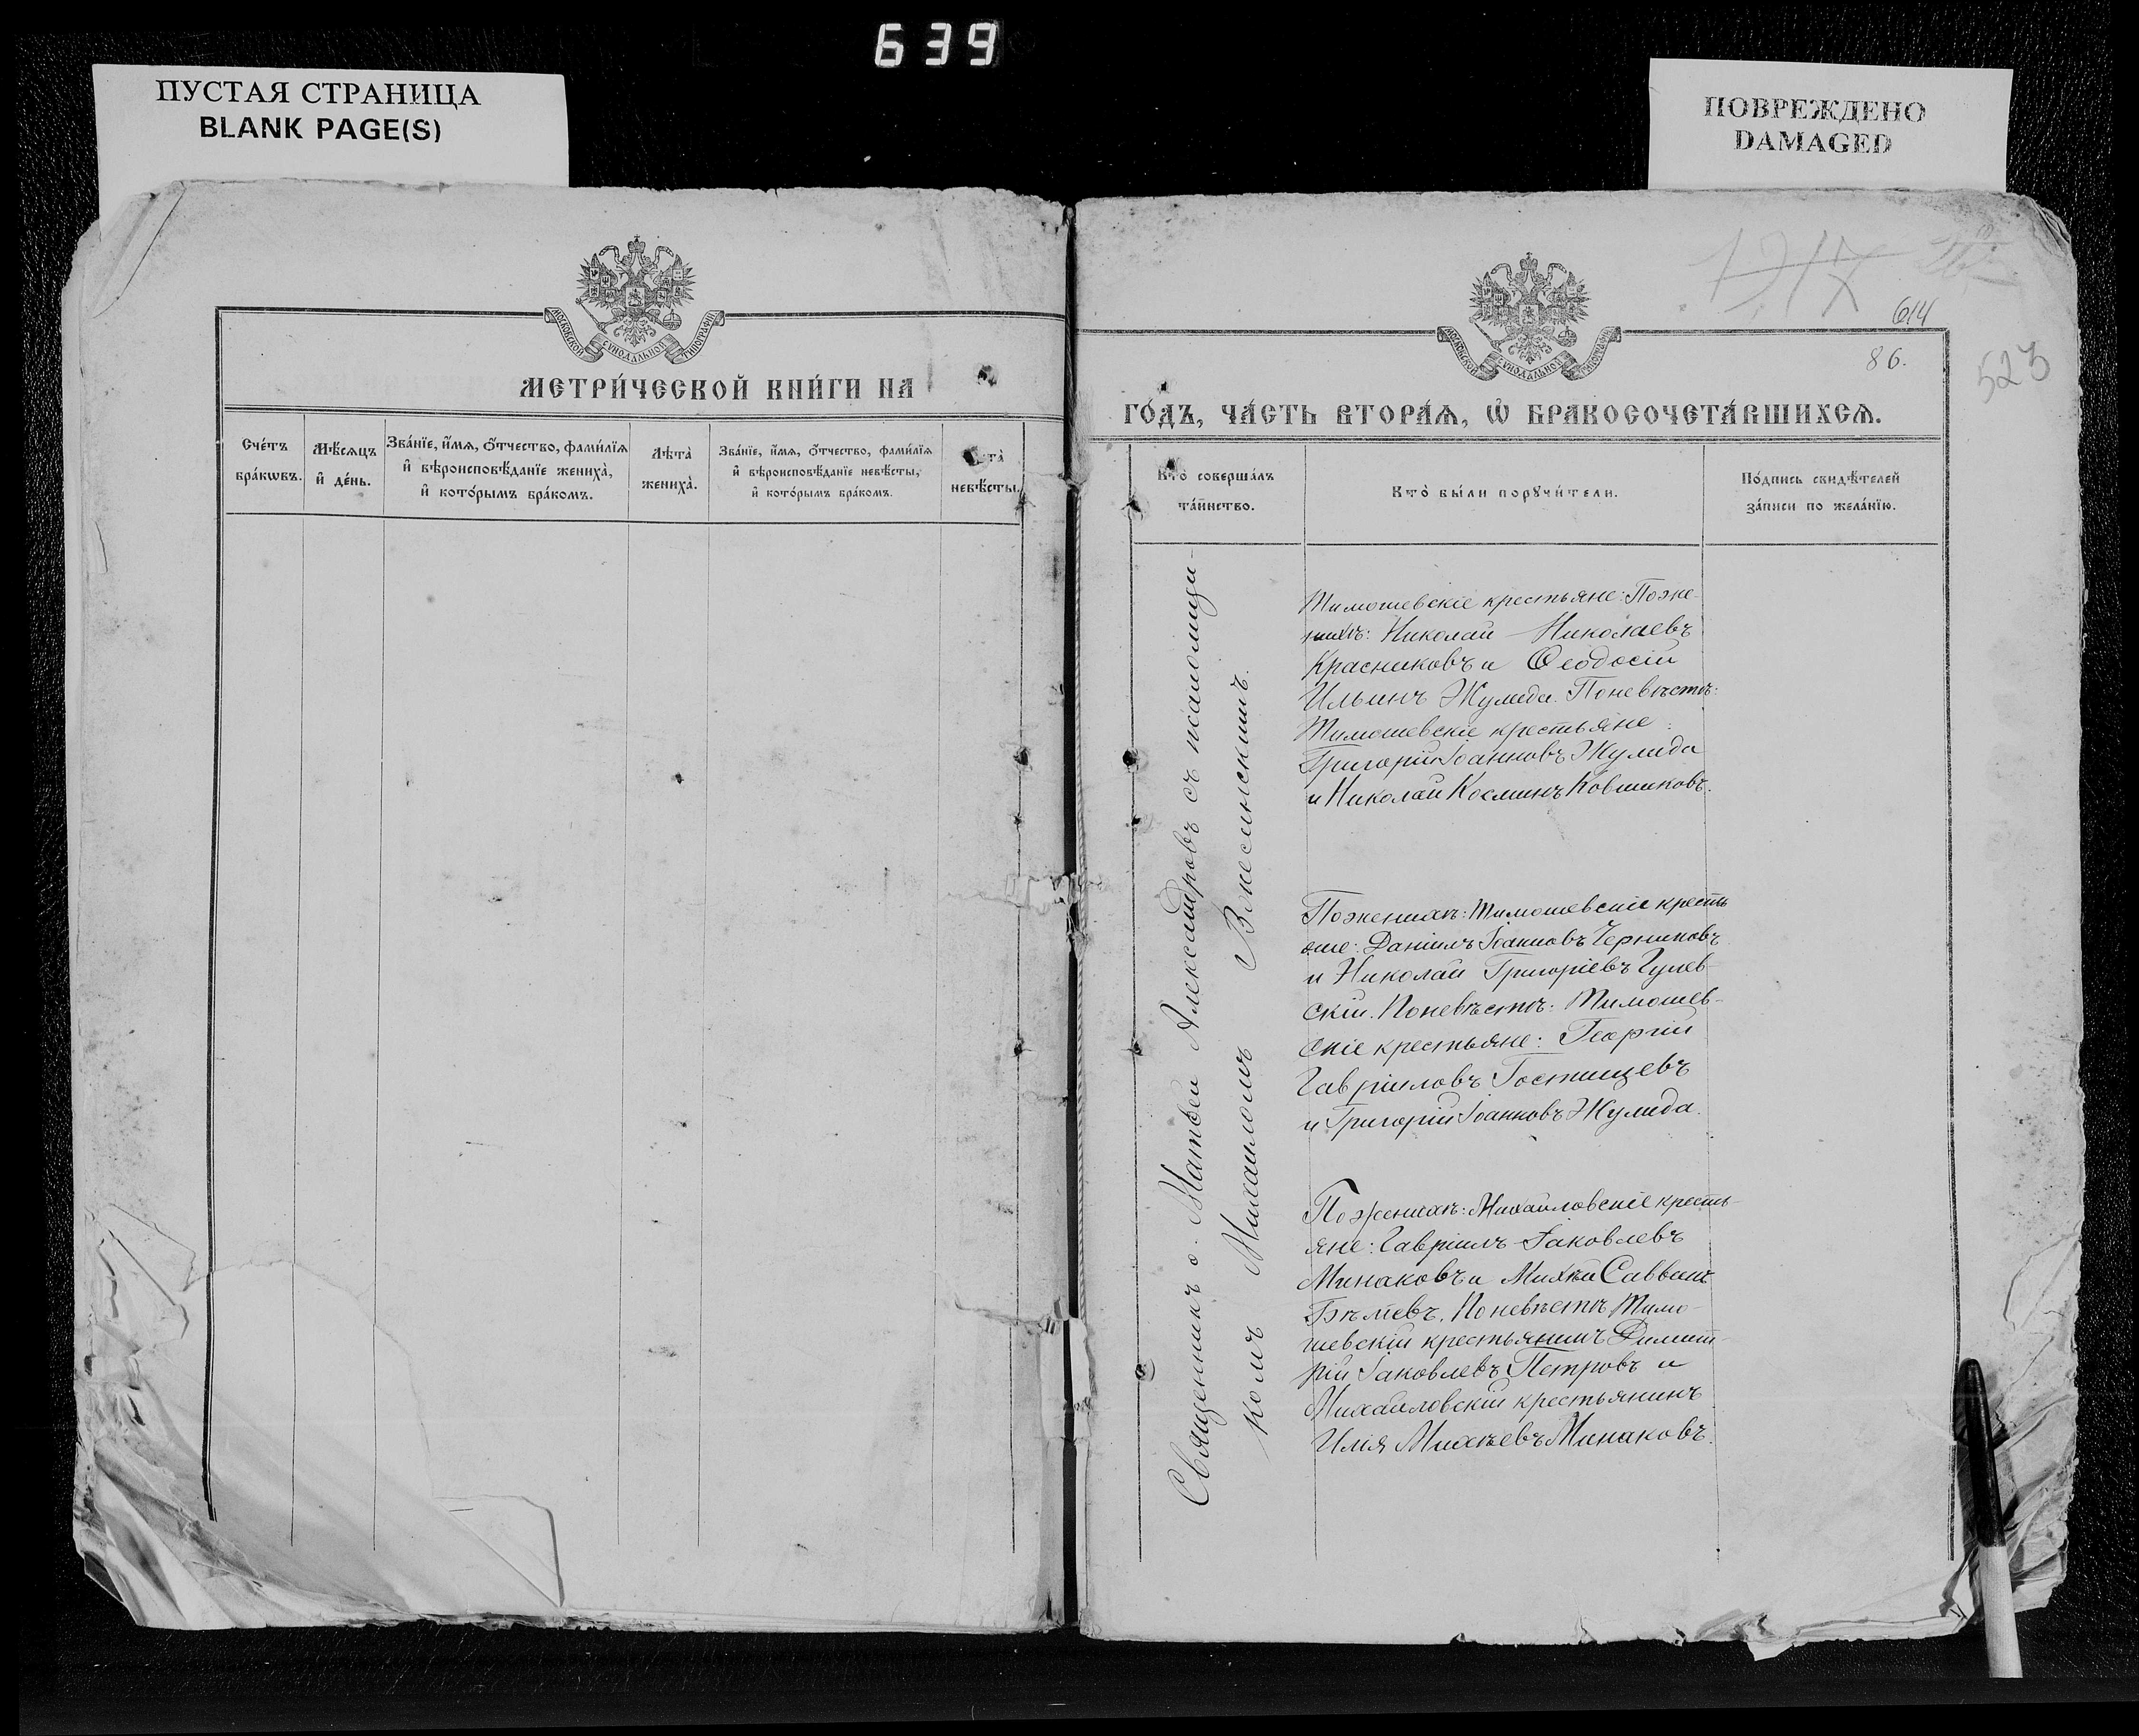 639
ПУСТАЯ СТРАНИЦА
BLANK PAGE(S)
ПОВРЕЖДЕНО
DAMAGED
МОСКОВСКОЙ СѴНОДАЛЬНОЙ ТИПОГРАФІИ
МЕТРИ́ЧЕСКОЙ КНИ́ГИ НА
Сче́тъ бра́кѡвъ.
Мѣ́сяцъ и҆ де́нь.
Зва́нїе, и҆́мѧ, ѻ҆́тчество, фами́лїѧ
и҆ вѣроисповѣ́данїе жениха̀,
и҆ кото́рымъ бра́комъ.
Лѣта̀ жениха̀.
Зва́нїе, и҆́мѧ, ѻ҆́тчество, фами́лїѧ
и҆ вѣроисповѣ́данїе невѣ́сты,
и҆ кото́рымъ бра́комъ.
Лѣта̀ невѣ́сты.
1217
614
86.
523
МОСКОВСКОЙ СѴНОДАЛЬНОЙ ТИПОГРАФІИ
ГО́ДЪ, ЧА́СТЬ ВТОРА́Ѧ, Ѡ҆ БРАКОСОЧЕТА́ВШИХСѦ.
Кто̀ соверша́лъ
та́инство.
Кто̀ бы́ли порꙋчи́тели.
По́дпись свидѣ́телей
за́писи по жела́нїю.
Священникъ о. Матвей Александровъ съ псаломщи-
комъ Михаиломъ Вознесенскимъ.
Тимошевскіе крестьяне: Поже-
нихѣ: Николай Николаевъ
Красниковъ и Ѳеодосій
Ильинъ Жулида. Поневѣстѣ:
Тимошевскіе крестьяне:
Григорій Іоанновъ Жулида
и Николай Косминъ Ковшиковъ.
Поженихѣ: Тимошевскіе кресть
яне: Даніилъ Іоанновъ Черниковъ
и Николай Григоріевъ Гулев-
скій. Поневѣстѣ: Тимошев-
скіе крестьяне: Георгій
Гавріиловъ Гостищевъ
и Григорій Іоанновъ Жулида.
Поженихѣ: Михайловскіе кресть-
яне: Гавріилъ Іаковлевъ
Минаковъ и Михѣй Саввинъ
Бѣляевъ. Поневѣстѣ Тимо-
шевскій крестьянинъ Димит-
рій Іаковлевъ Петровъ и
Михайловскій крестьянинъ
Илія Михѣевъ Минаковъ.